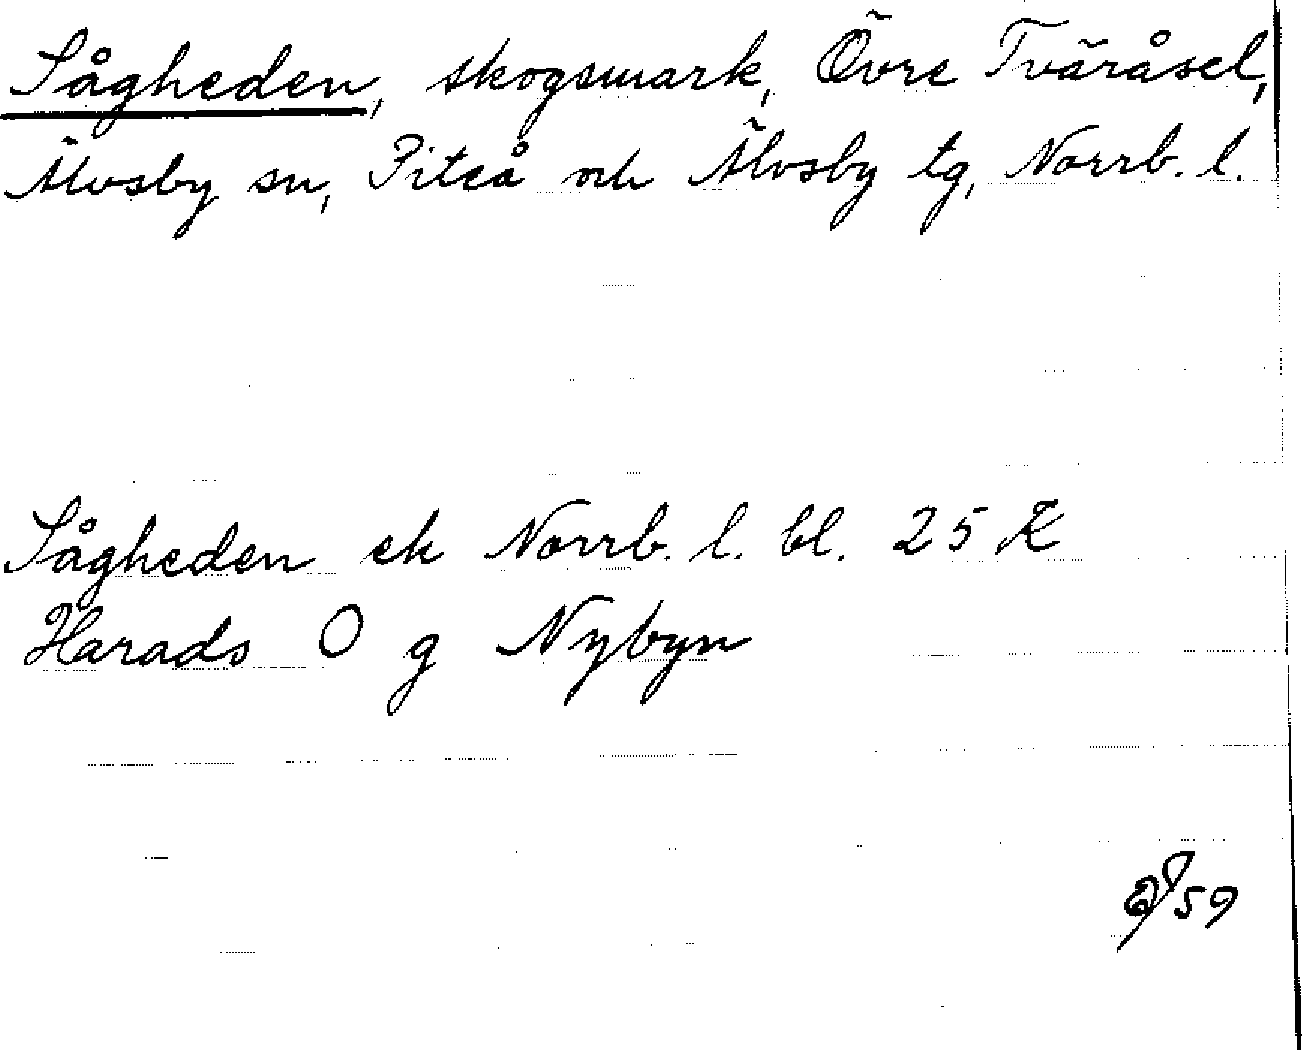 Sågheden, skogsmark, Övre Tväråsel,
Älvsby sn, Piteå och Älvsby tg, Norrb. l.
Sågheden ek Norrb. l. bl. 25 K
Harads O g Nybyn
59